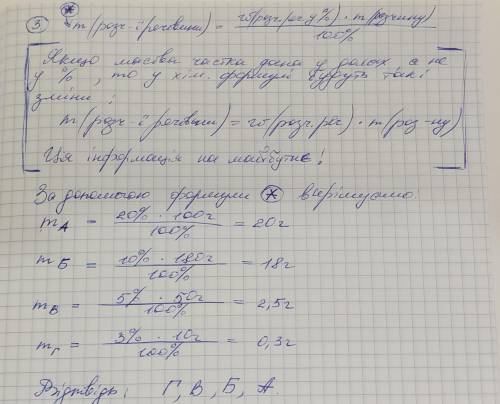 ③ ⊛ m(розч-ї речовини) = w(розч. реч. у %) · m(розчину) / 100%
[Якщо масова частка дана у долях а не
у %, то у хім. формулі будуть такі
зміни:
m(розч-ї речовини) = w(розч. реч) · m(роз-ну)
Ця інформація на майбутнє!]
За допомогою формули ⊛ вирішуємо
mА = 20% · 100г / 100% = 20г
mБ = 10% · 180г / 100% = 18г
mВ = 5% · 50г / 100% = 2,5г
mГ = 3% · 10г / 100% = 0,3г
Відповідь: Г, В, Б, А.